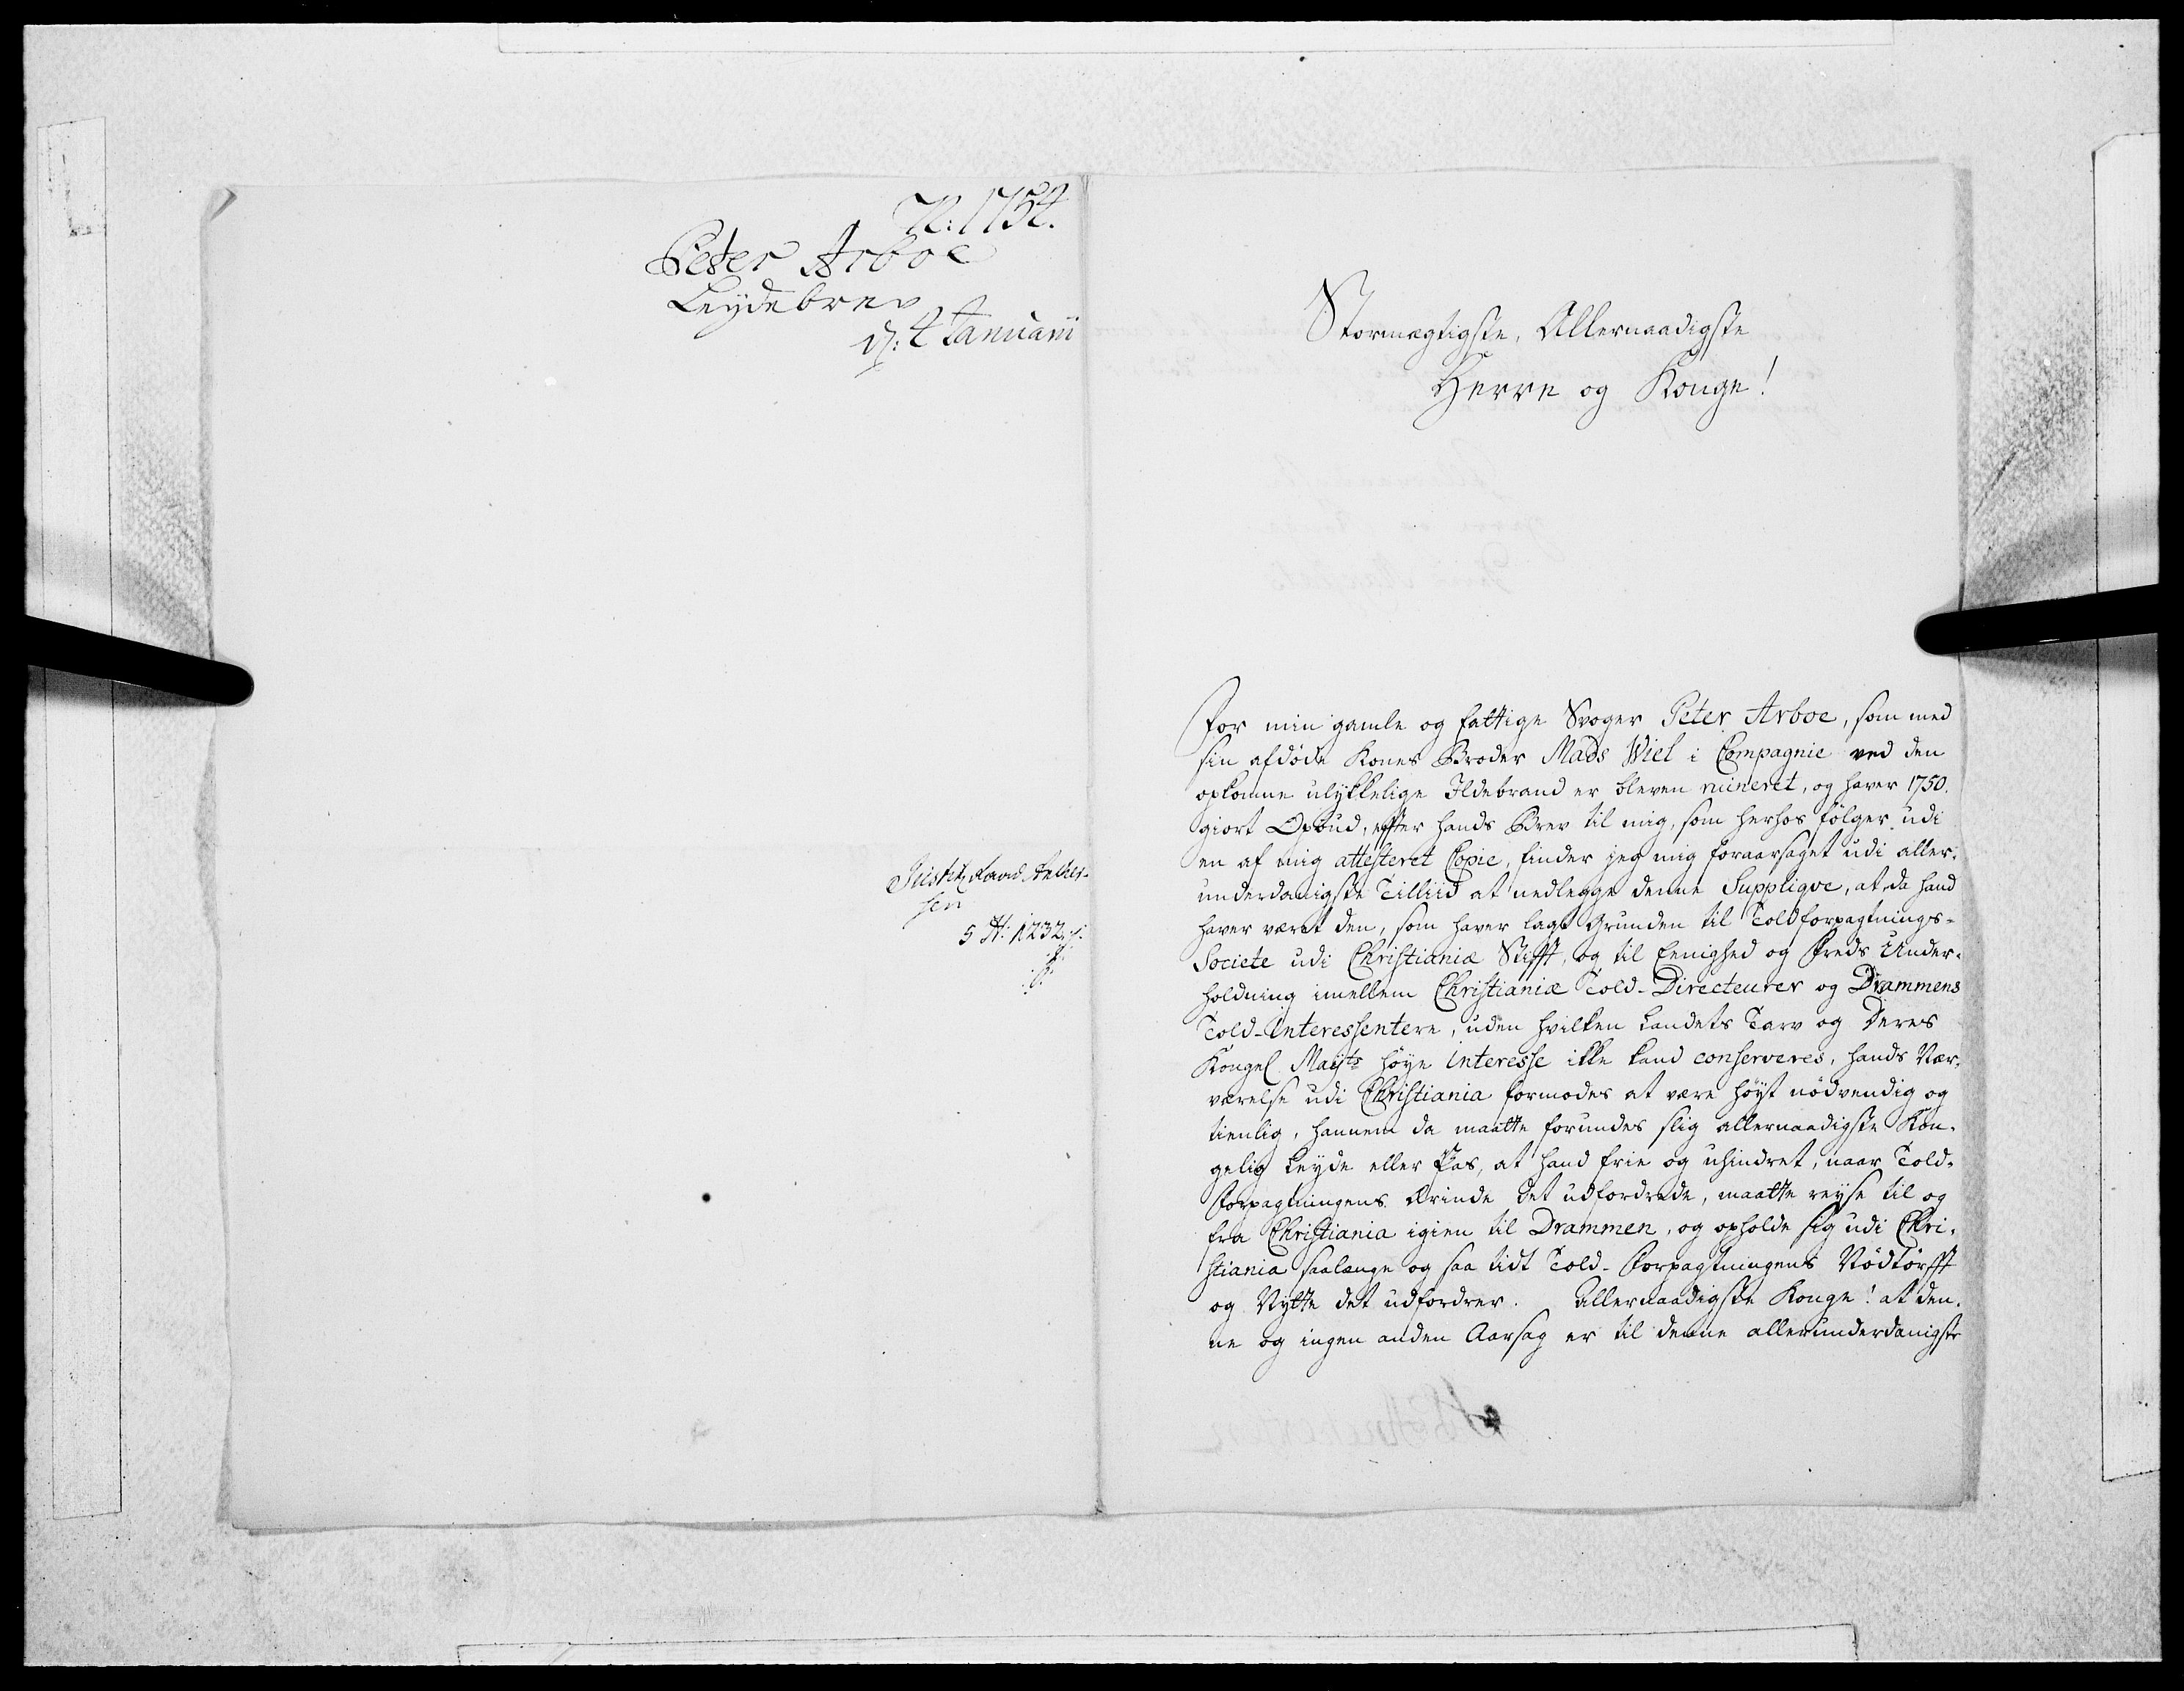 N: 1754.
Peter Arboe
Leydebrev
d: 4 Januarii
Justitz Raad Ancher-
sen
5 A: 1232.
Stormægtigste, Allernaadigste
Herre og Konge!
For min gamle og fattige Svoger Peter Arboe, som med
sin afdøde Kones Broder Mads Wiel i Compagnie ved den
opkomne ulykkelige Ildebrand er bleven ruineret, og haver 1750.
giort Opbud, efter hands Brev til mig, som herhos følger udi
en af mig attesteret Copie, finder jeg mig foraarsaget udi aller-
underdanigste Tilliid at nedlegge denne Suppliqve, at da hand
haver været den, som haver lagt Grunden til Toldforpagtnings-
Societe udi Christianiæ Stifft, og til Eenighed og Freds Under-
holdning imellem Christianiæ Told-Directeurer og Drammens
Told-Interessentere, uden hvilken Landets Tarv og Deres
Kongel. Mayts høye interesse ikke kand conserveres, hands Nær-
værelse udi Christiania formodes at være høyst nødvendig og
tienlig, hannem da maatte forundes slig allernaadigste Kon-
gelig Leyde eller Pas, at hand frie og uhindret, naar Told-
Forpagtningens Ærinde det udfordrede, maatte reyse til og
fra Christiania igien til Drammen, og opholde sig udi Chri-
stiania saalænge og saa tidt Told-Forpagtningens Nødtørfft
og Nytte det udfordrer. Allernaadigste Konge! at den-
ne og ingen anden Aarsag er til denne allerunderdanigste